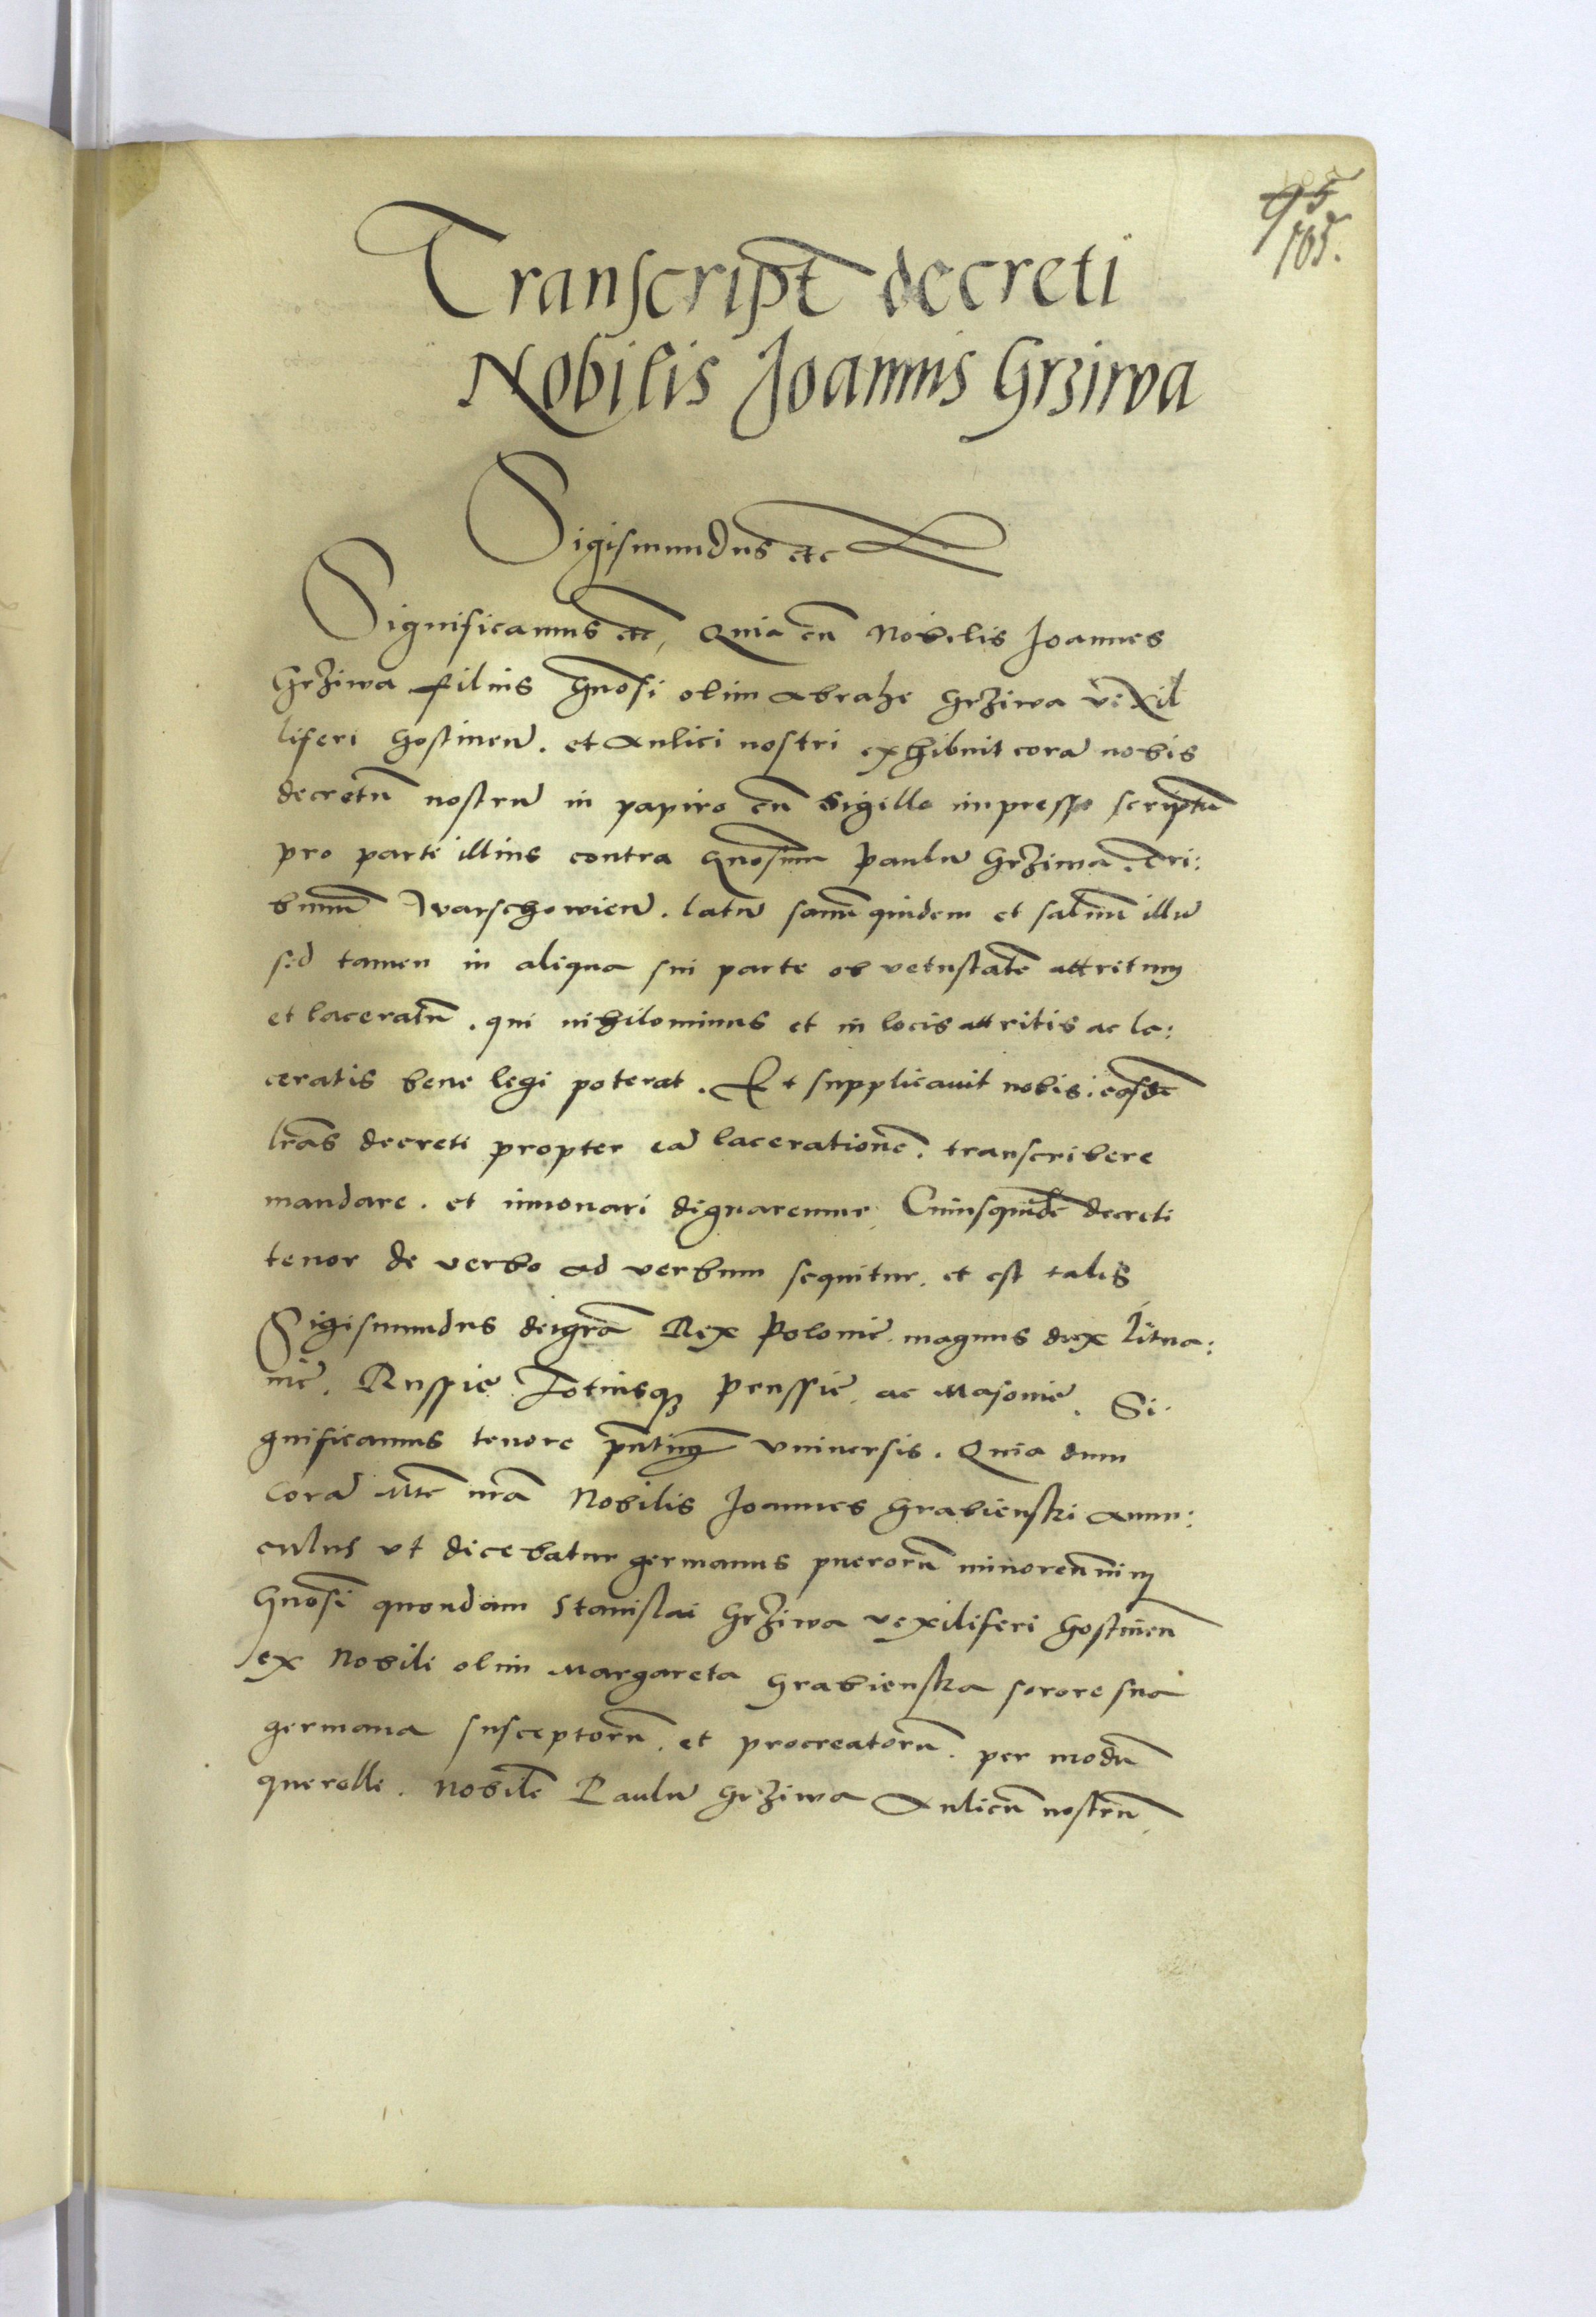 95
105.
Transcript̄ decreti
Nobilis Joannis Grziwa
Sigismundus etc
Significamus etc, Quia cū Nobilis Joannes
Grziwa filius Gnosi olim Abrahe Grziwa vexil
liferi Gostinen̄. et Aulici nostri exhibuit corā nobis
decretū nostrū in papiro cū Sigillo impresso scriptū
pro parte illius contra Gnosum Paulū Grziwa. Tri:
bunū Warschowien̄. latū sanū quidem et saluū illū
sed tamen in aliqua sui parte ob vetustatē attritum
et laceratū. qui nihilominus et in locis attritis ac la:
ceratis bene legi poterat. Et supplicauit nobis. easdē
lrās decreti propter eā lacerationē. transcribere
mandare. et innouari dignaremur. Cuiusquidē decreti
tenor de verbo ad verbum sequitur. et est talis
Sigismundus dei grā Rex Polonie. magnus dux Litua:
nie. Russie. Totiusque Prussie. ac Masouie. Si:
gnificamus tenore pn̄tium vniuersis. Quia dum
corā Mte nrā Nobilis Joannes Grabienski Auun:
culus vt dicebatur germanus puerorū minorennium
Gnosi quondam Stanislai Grziwa vexiliferi Gostinen̄
ex Nobili olim Margareta Grabienska sorore sua
germana susceptorū. et procreatorū. per modū
querelle. Nobilē Paulū Grziwa Aulicū nostrū.